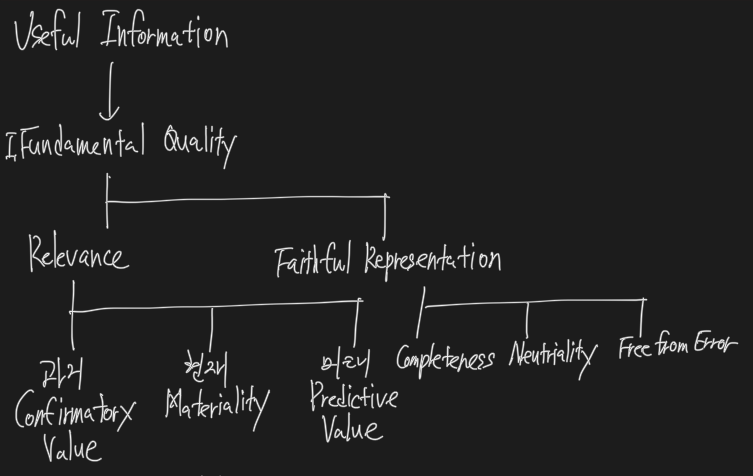 Useful Information
I Fundamental Quality
Relevance
Faithful Representation
과거
Confirmatory
Value
현재
Materiality
미래
Predictive
Value
Completeness
Neutriality
Free from Error